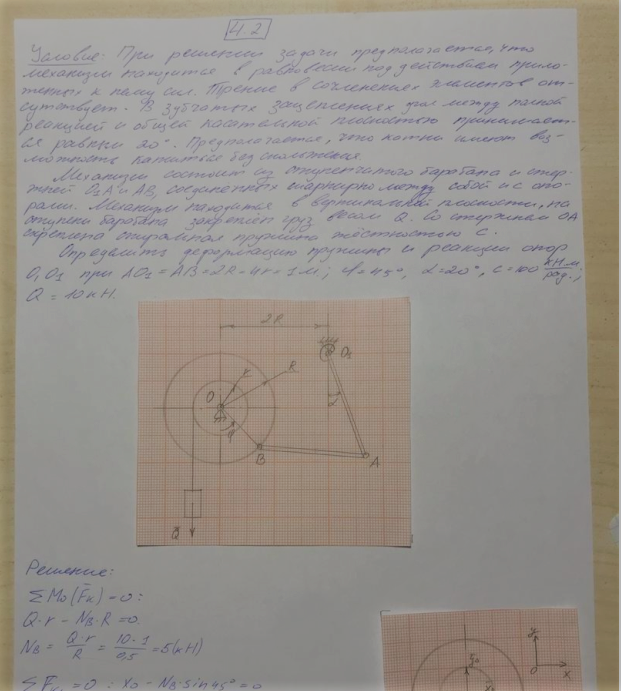 Н.2
Условие: При решении задачи предполагается, что
механизм находится в равновесии под действием прило-
женных к нему сил. Трение в сочленениях элементов от-
сутствует. В зубчатых зацеплениях угол между полной
реакцией и общей касательной плоскостью принимает-
ся равным 20°. Предполагается, что катки имеют воз-
можность катиться без скольжения.
Механизм состоит из ступенчатого барабана и стер-
жней O₁A и AB, соединенных шарнирно между собой и с опо-
рами. Механизм находится в вертикальной плоскости, на
ступени барабана закреплён груз весом Q. Со стержнем OA
скреплена спиральная пружина жёсткостью c.
Определить деформацию пружины и реакции опор
O, O₁ при AO₁ = AB = 2R = 4r = 1 м; φ = 45°, α = 20°, c = 100 кН·м/рад.,
Q = 10 кН.
2R
O₁
r
R
O
α
φ
B
A
Q̄
Решение:
ΣMo(F̄к) = 0:
Q·r - N_B·R = 0
N_B = Q·r/R = 10·1/0,5 = 5 (кН)
ΣFкx = 0: X₀ - N_B·sin45° = 0
y
O
x